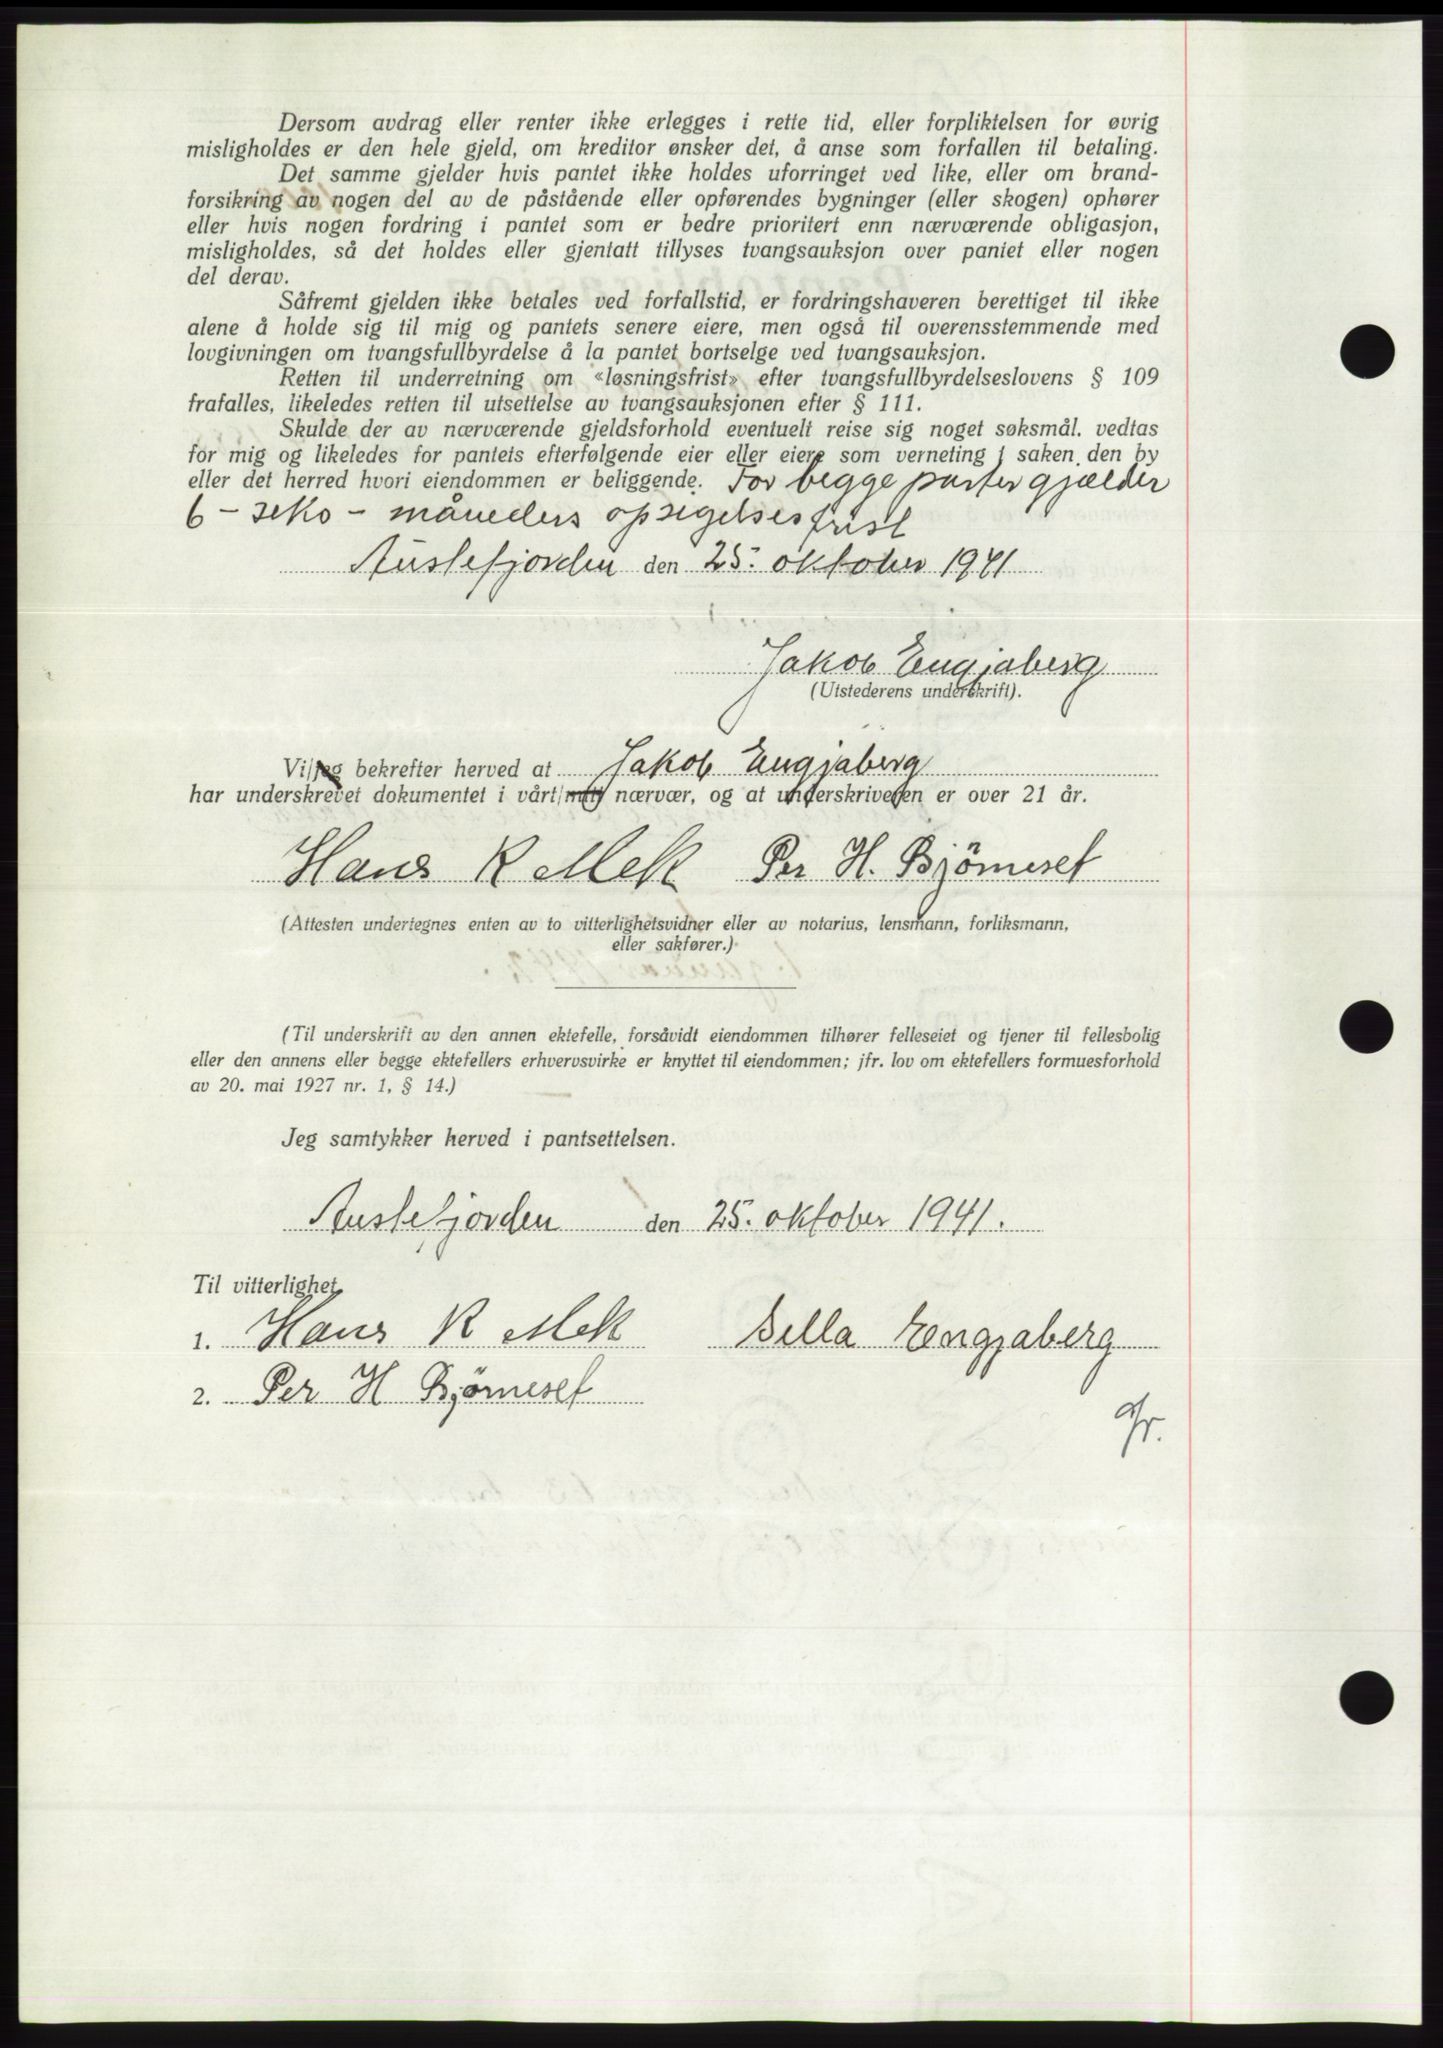 Dersom avdrag eller renter ikke erlegges i rette tid, eller forpliktelsen for øvrig
misligholdes er den hele gjeld, om kreditor ønsker det, å anse som forfallen til betaling.
Det samme gjelder hvis pantet ikke holdes uforringet ved like, eller om brand-
forsikring av nogen del av de påstående eller opførendes bygninger (eller skogen) ophører
eller hvis nogen fordring i pantet som er bedre prioritert enn nærværende obligasjon,
misligholdes, så det holdes eller gjentatt tillyses tvangsauksjon over pantet eller nogen
del derav.
Såfremt gjelden ikke betales ved forfallstid, er fordringshaveren berettiget til ikke
alene å holde sig til mig og pantets senere eiere, men også til overensstemmende med
lovgivningen om tvangsfullbyrdelse å la pantet bortselge ved tvangsauksjon.
Retten til underretning om «løsningsfrist» efter tvangsfullbyrdelseslovens § 109
frafalles, likeledes retten til utsettelse av tvangsauksjonen efter § 111.
Skulde der av nærværende gjeldsforhold eventuelt reise sig noget søksmål. vedtas
for mig og likeledes for pantets efterfølgende eier eller eiere som verneting i saken den by
eller det herred hvori eiendommen er beliggende. For begge parter gjælder
6 – seks – måneders opsigelsesfrist
Austefjorden den 25. oktober 1941
Jakob Engjaberg
(Utstederens underskrift).
Vi/jeg bekrefter herved at Jakob Engjaberg
har underskrevet dokumentet i vårt/mitt nærvær, og at underskriveren er over 21 år.
Hans R Mek Per H. Bjørneset
(Attesten undertegnes enten av to vitterlighetsvidner eller av notarius, lensmann, forliksmann,
eller sakfører.)
(Til underskrift av den annen ektefelle, forsåvidt eiendommen tilhører felleseiet og tjener til fellesbolig
eller den annens eller begge ektefellers erhvervsvirke er knyttet til eiendommen; jfr. lov om ektefellers formuesforhold
av 20. mai 1927 nr. 1, § 14.)
Jeg samtykker herved i pantsettelsen.
Austefjorden den 25. oktober 1941.
Til vitterlighet
1. Hans R Mek Sella Engjaberg
2. Per H Bjørneset